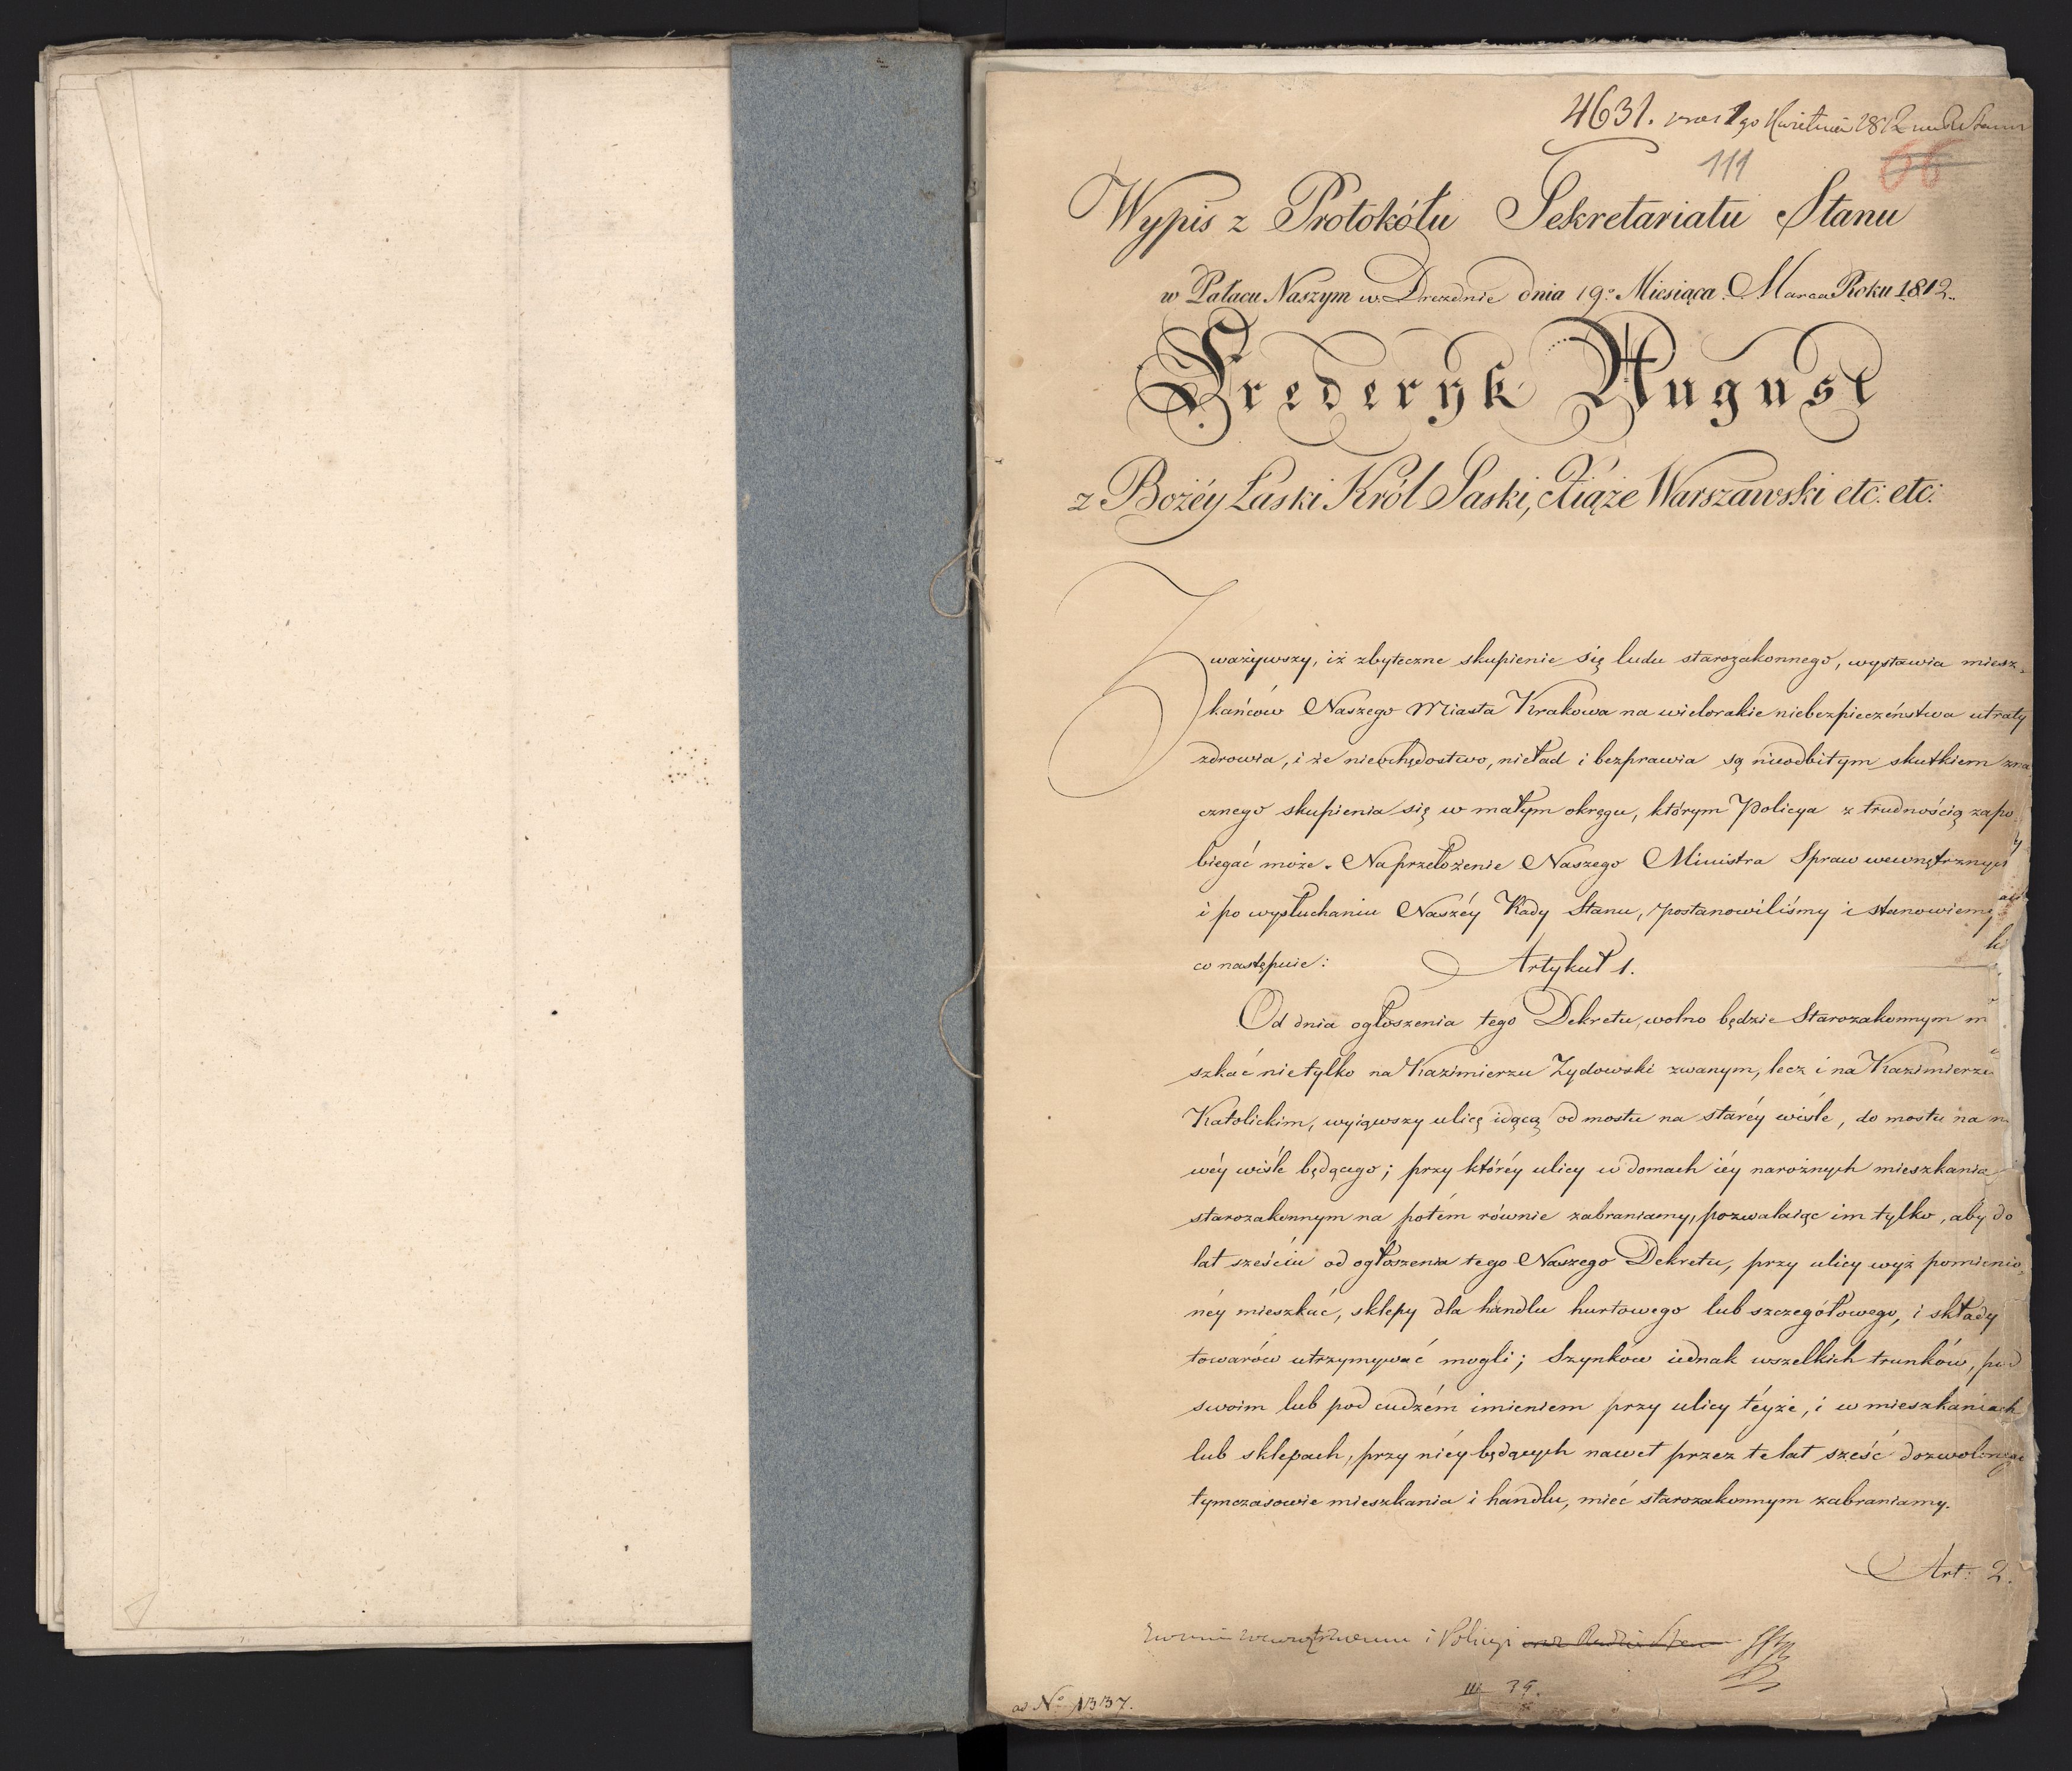 4631. 1go Kwietnia 1812
111
66
Wypis z Protokółu Sekretariatu Stanu
w Pałacu Naszym w Dreźdnie dnia 19º Miesiąca Marca Roku 1812.
Frederyk August
z Bożéy Łaski Król Saski, Xiąże Warszawski etc: etc:
Zważywszy, iż zbyteczne skupienie się ludu starozakonnego, wystawia miesz-
kańców Naszego Miasta Krakowa na wielorakie niebezpieczeństwa utraty
zdrowia, i że niechędostwo, nieład i bezprawia są nieodbitym skutkiem zna
cznego skupienia się w małym okręgu, którym Policya z trudnością zapo
biegać może. Na przełożenie Naszego Ministra Spraw wewnętrznych
i po wysłuchaniu Naszéy Rady Stanu, postanowiliśmy i stanowiemy
co następuie: Artykuł 1.
Od dnia ogłoszenia tego Dekretu, wolno będzie Starozakonnym m
szkać nietylko na Kazimierzu Zydowski zwanym, lecz i na Kazimierzu
Katolickim, wyiąwszy ulicę idącą od mostu na staréy wiśle, do mostu na n
wéy wiśle będącego; przy któréy ulicy w domach iéy narożnych mieszkania
starozakonnym na potém równie zabraniamy, pozwalaiąc im tylko, aby do
lat sześciu od ogłoszenia tego Naszego Dekretu, przy ulicy wyż pomienio-
néy mieszkać, sklepy dla handlu hurtowego lub szczegółowego, i składy
towarów utrzymywać mogli; Szynków iednak wszelkich trunków, pod
swoim lub pod cudzém imieniem przy ulicy téyże, i w mieszkaniach
lub sklepach, przy niéy będących nawet przez te lat sześć dozwolonego
tymczasowie mieszkania i handlu, mieć starozakonnym zabraniamy.
Art: 2.
i Policyi
III 39.
ad Nº 1337.